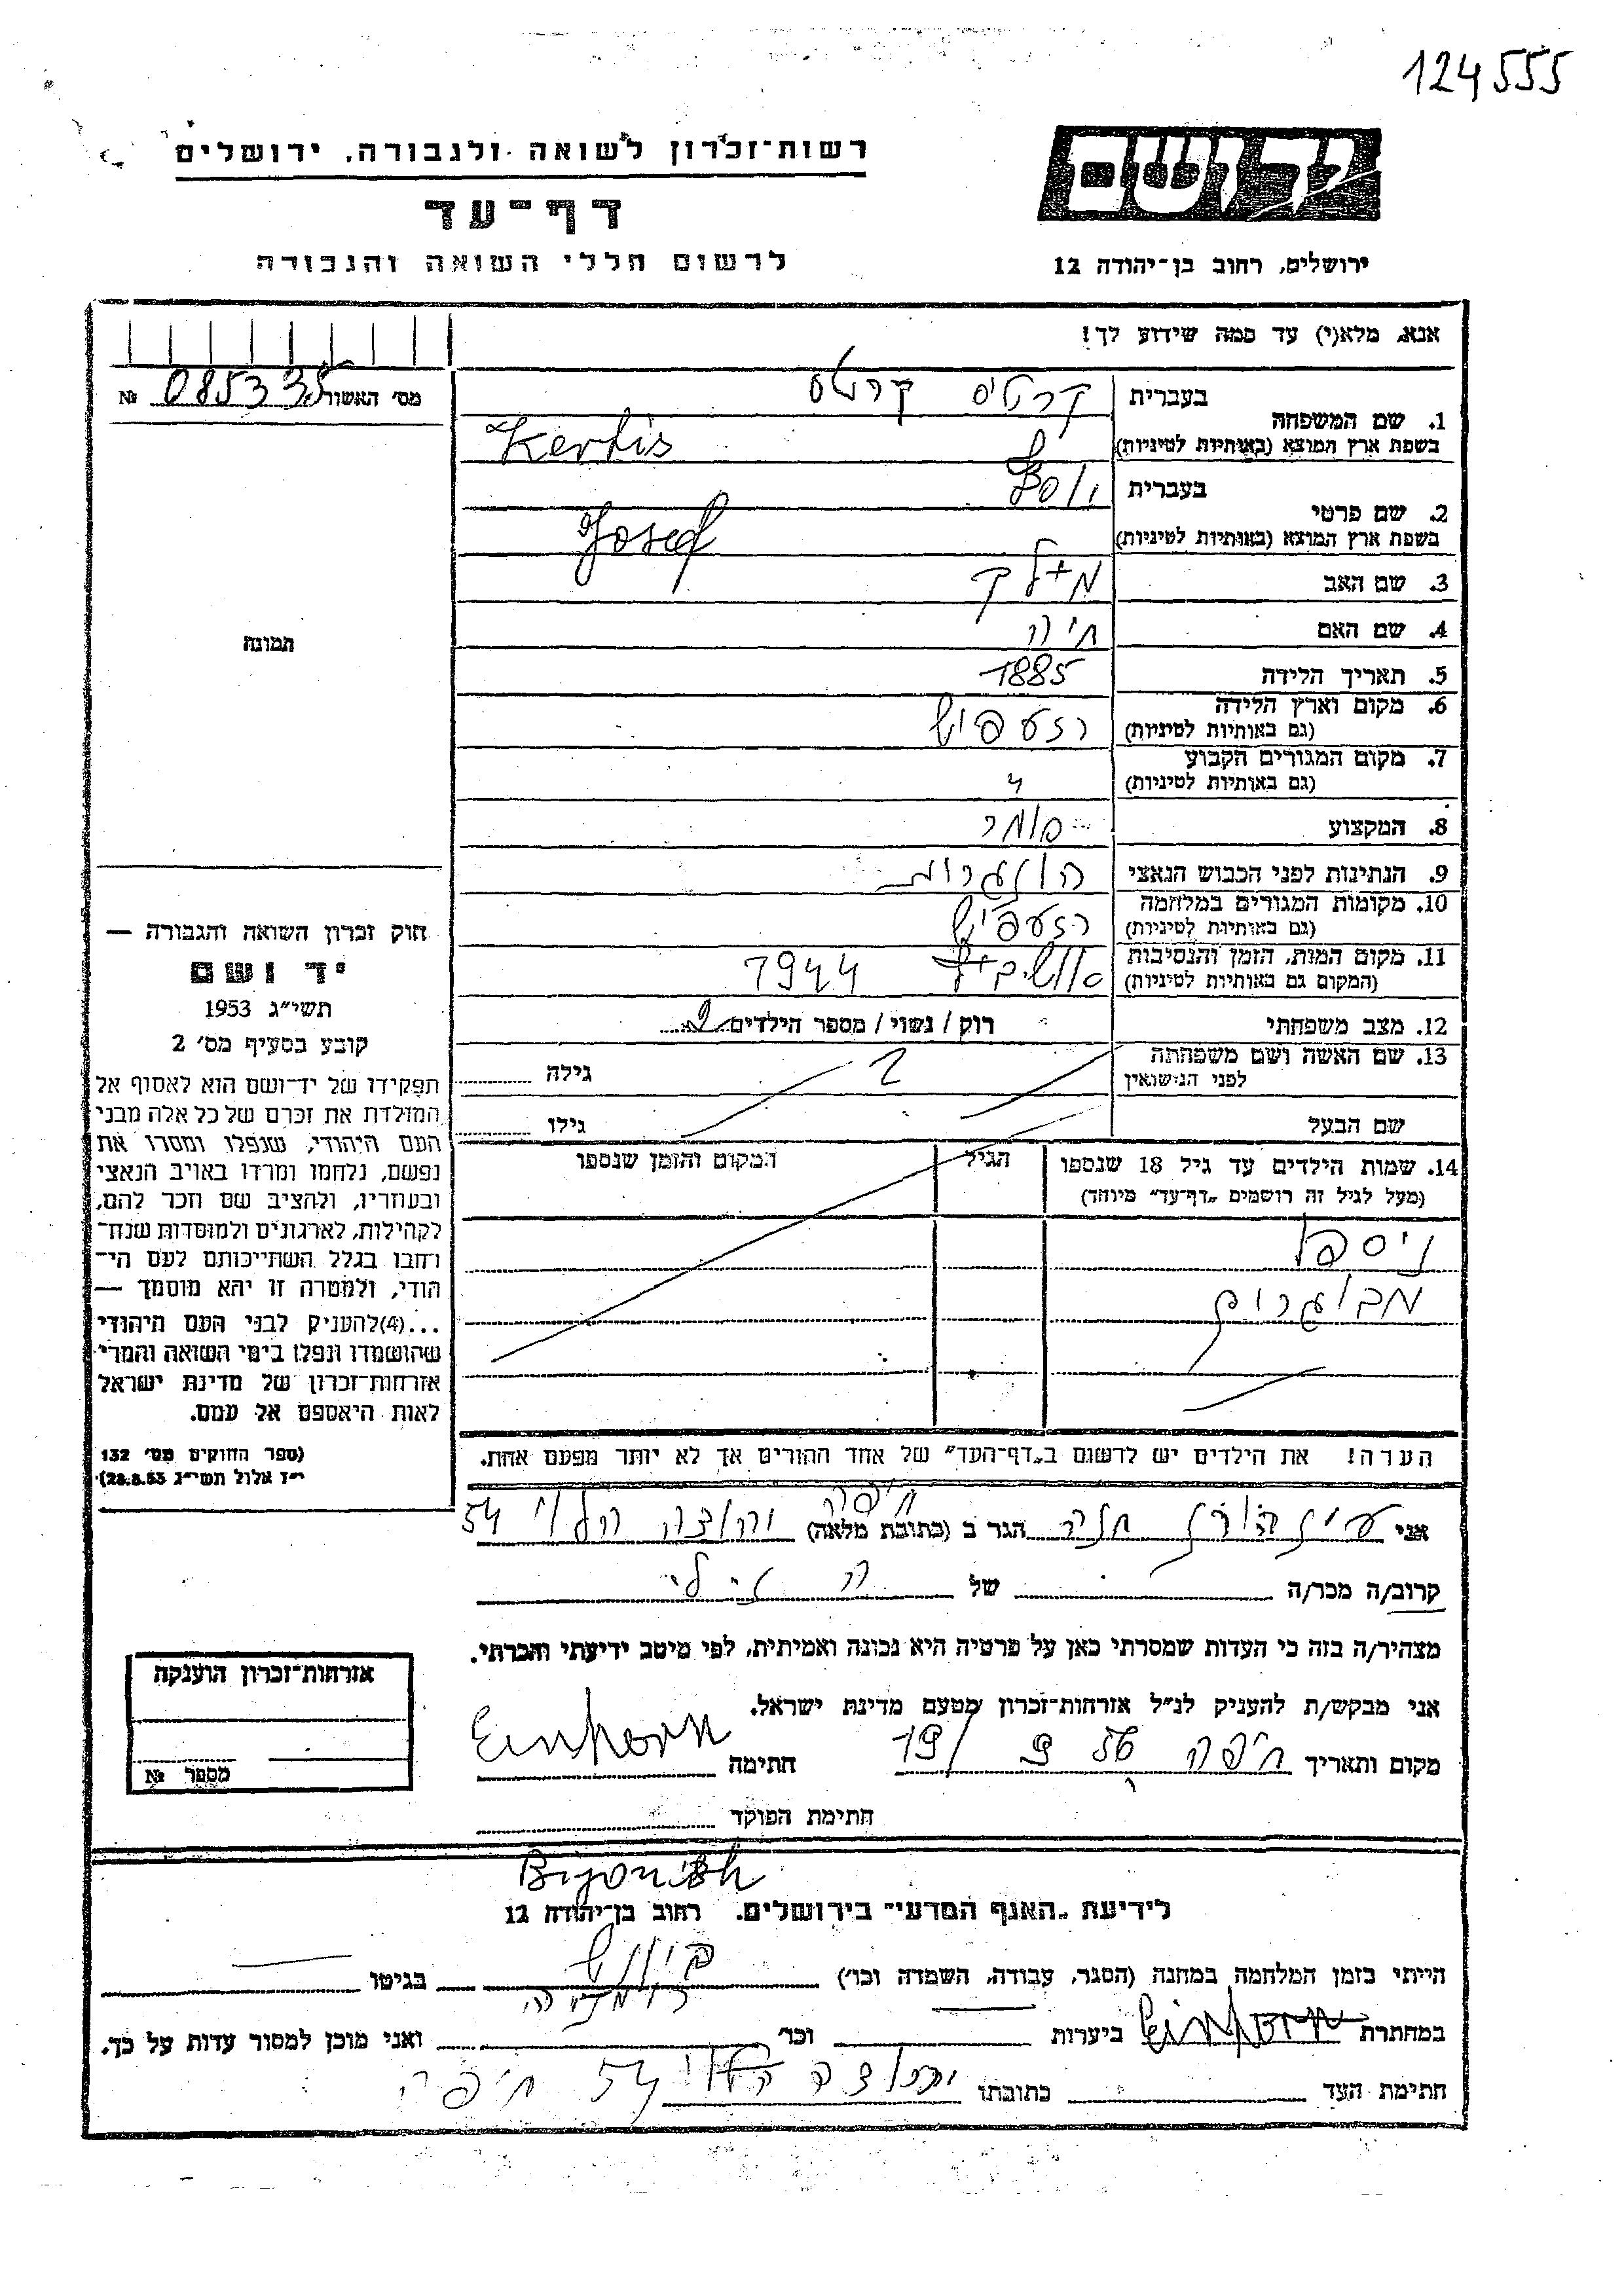 124555
יד ושם
רשות־זכרון לשואה ולגבורה, ירושלים
דף־עד
לרשום חללי השואה והגבורה
ירושלים, רחוב בן־יהודה 12
אנא, מלא(י) עד כמה שידוע לך!
מס׳ האשור 085335 №
תמונה
1. שם המשפחה בעברית קרטיס קרטס
בשפת ארץ המוצא (באותיות לטיניות) Kertis
2. שם פרטי בעברית יוסף
בשפת ארץ המוצא (באותיות לטיניות) Josef
3. שם האב
4. שם האם חיה
5. תאריך הלידה 1885
6. מקום וארץ הלידה
(גם באותיות לטיניות)
7. מקום המגורים הקבוע
(גם באותיות לטיניות)
8. המקצוע סוחר
9. הנתינות לפני הכבוש הנאצי
10. מקומות המגורים במלחמה
(גם באותיות לטיניות)
11. מקום המות, הזמן והנסיבות 1944
(המקום גם באותיות לטיניות)
12. מצב משפחתי רוק / נשוי / מספר הילדים
13. שם האשה ושם משפחתה גילה
לפני הנישואין
שם הבעל גילו
14. שמות הילדים עד גיל 18 שנספו הגיל המקום והזמן שנספו
(מעל לגיל זה רושמים „דף־עד״ מיוחד)
ניספו
מבוגרים
הערה! את הילדים יש לרשום ב„דף־העד״ של אחד ההורים אך לא יותר מפעם אחת.
חוק זכרון השואה והגבורה —
יד ושם
תשי״ג 1953
קובע בסעיף מס׳ 2
תפקידו של יד־ושם הוא לאסוף אל
המולדת את זכרם של כל אלה מבני
העם היהודי, שנפלו ומסרו את
נפשם, נלחמו ומרדו באויב הנאצי
ובעוזריו, ולהציב שם וזכר להם,
לקהילות, לארגונים ולמוסדות שנח־
רחבו בגלל השתייכותם לעם הי־
הודי, ולמטרה זו יהא מוסמך —
...(4)להעניק לבני העם היהודי
שהושמדו ונפלו בימי השואה והמרי
אזרחות־זכרון של מדינת ישראל
לאות היאספם אל עמם.
(ספר החוקים מס׳ 132
י״ז אלול תשי״ג 28.8.53)
חיפה
אני עינהורן חנה הגר ב (כתובת מלאה) יהודה הלוי 54
קרוב/ה מכר/ה של
מצהיר/ה בזה כי העדות שמסרתי כאן על פרטיה היא נכונה ואמיתית, לפי מיטב ידיעתי והכרתי.
אני מבקש/ת להעניק לנ״ל אזרחות־זכרון מטעם מדינת ישראל.
מקום ותאריך חיפה 19/ 9 56 חתימה Einhorn
חתימת הפוקד
אזרחות־זכרון הוענקה
מספר №
לידיעת „האגף המדעי״ בירושלים. רחוב בן־יהודה 12
הייתי בזמן המלחמה במחנה (הסגר, עבודה, השמדה וכו׳) בגיטו
רומניה
במחתרת Einhorn ביערות וכו׳ ואני מוכן למסור עדות על כך.
חתימת העד כתובתו יהודה הלוי 54 חיפה